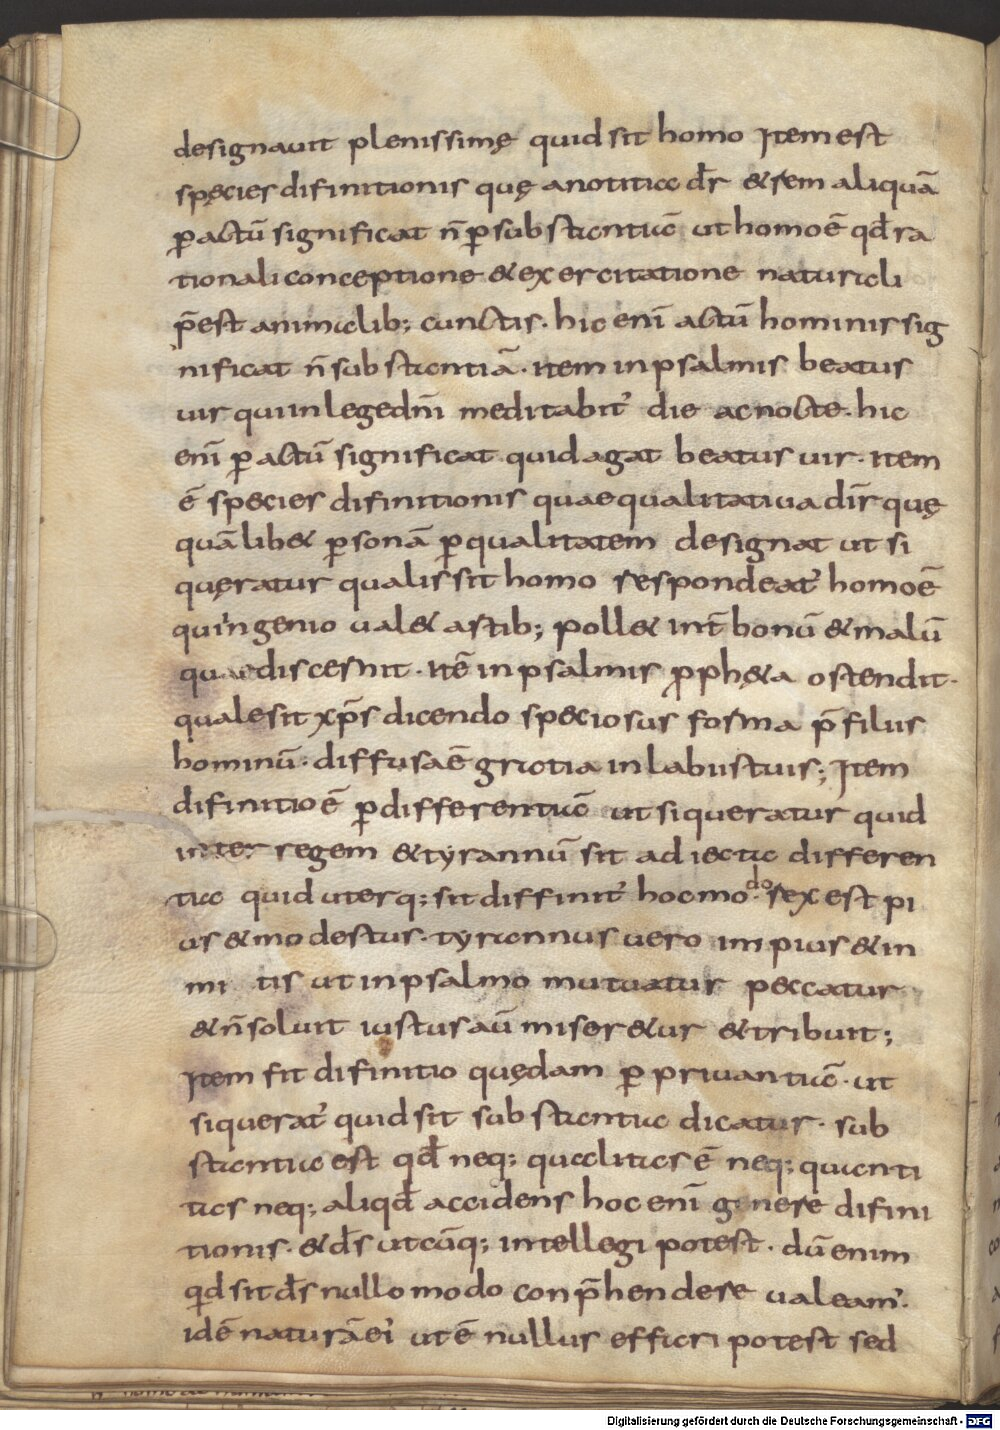 designauit plenissimę quid sit homo Item est
spęcies difinitionis quę anotitia dr̄ & rem aliquā
ꝑ actū significat n̄ ꝑ substantiā ut homo ē qd̄ ra
tionali conceptione & exercitatione naturali
p̄est animalib; cunctis · hic enī actū hominis sig
nificat n̄ substantiā · item in psalmis beatus
uir qui in lege dnī meditabit᾽ die ac nocte · hic
enī ꝑ actū significat quid agat beatus uir · item
ē species difinitionis quae qualitatiua dīr quę
quālib& ꝑsonā ꝑ qualitatem designat ut si
quęratur qualis sit homo respondeat᾽ homo ē
qui ingenio ual& astib; poll& int̄ bonū & malū
quae discernit · itē in psalmis ꝓph&a ostendit ·
quale sit xp̄s dicendo speciosus forma p̄ filus
hominū · diffusa ē gratia in labiis tuis; Item
difinitio ē ꝑ differentiā ut si queratur quid
inter regem & tyrannū sit adiecta differen
tia quid uterq; sit diffinit᾽ hoc modo · rex est pi
us & modestus · tyrannus uero impius & in
mitis ut in psalmo mutuatur peccatur
& n̄ soluit iustus aū miser&ur & tribuit;
Item fit difinitio quędam ꝑ priuantiā · ut
si querat᾽ quid sit substantia dicatur · sub
stantia est qd̄ neq; qualitas ē neq; quanti
tas neq; aliqd̄ accidens hoc enī genere difini
tionis · & dȝ utcūq; intellegi potest · dū enim
qid sit dȝ nullo modo conp̄hendere ualeam᾽ ·
idē naturā ei᾽ ut ē nullus effici potest sed
Digitalisierung gefördert durch die Deutsche Forschungsgemeinschaft - DFG